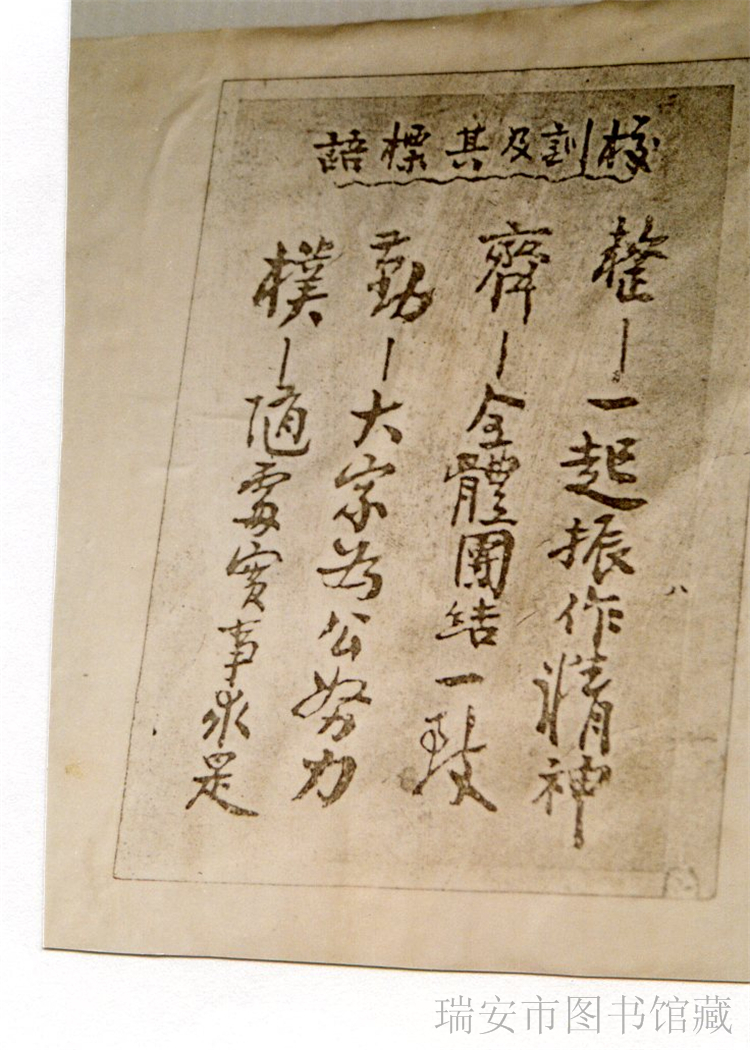 校訓及其標語
整—一起振作精神
齊—全體團結一致
勤—大家為公努力
樸—隨處實事求是
瑞安市图书馆藏